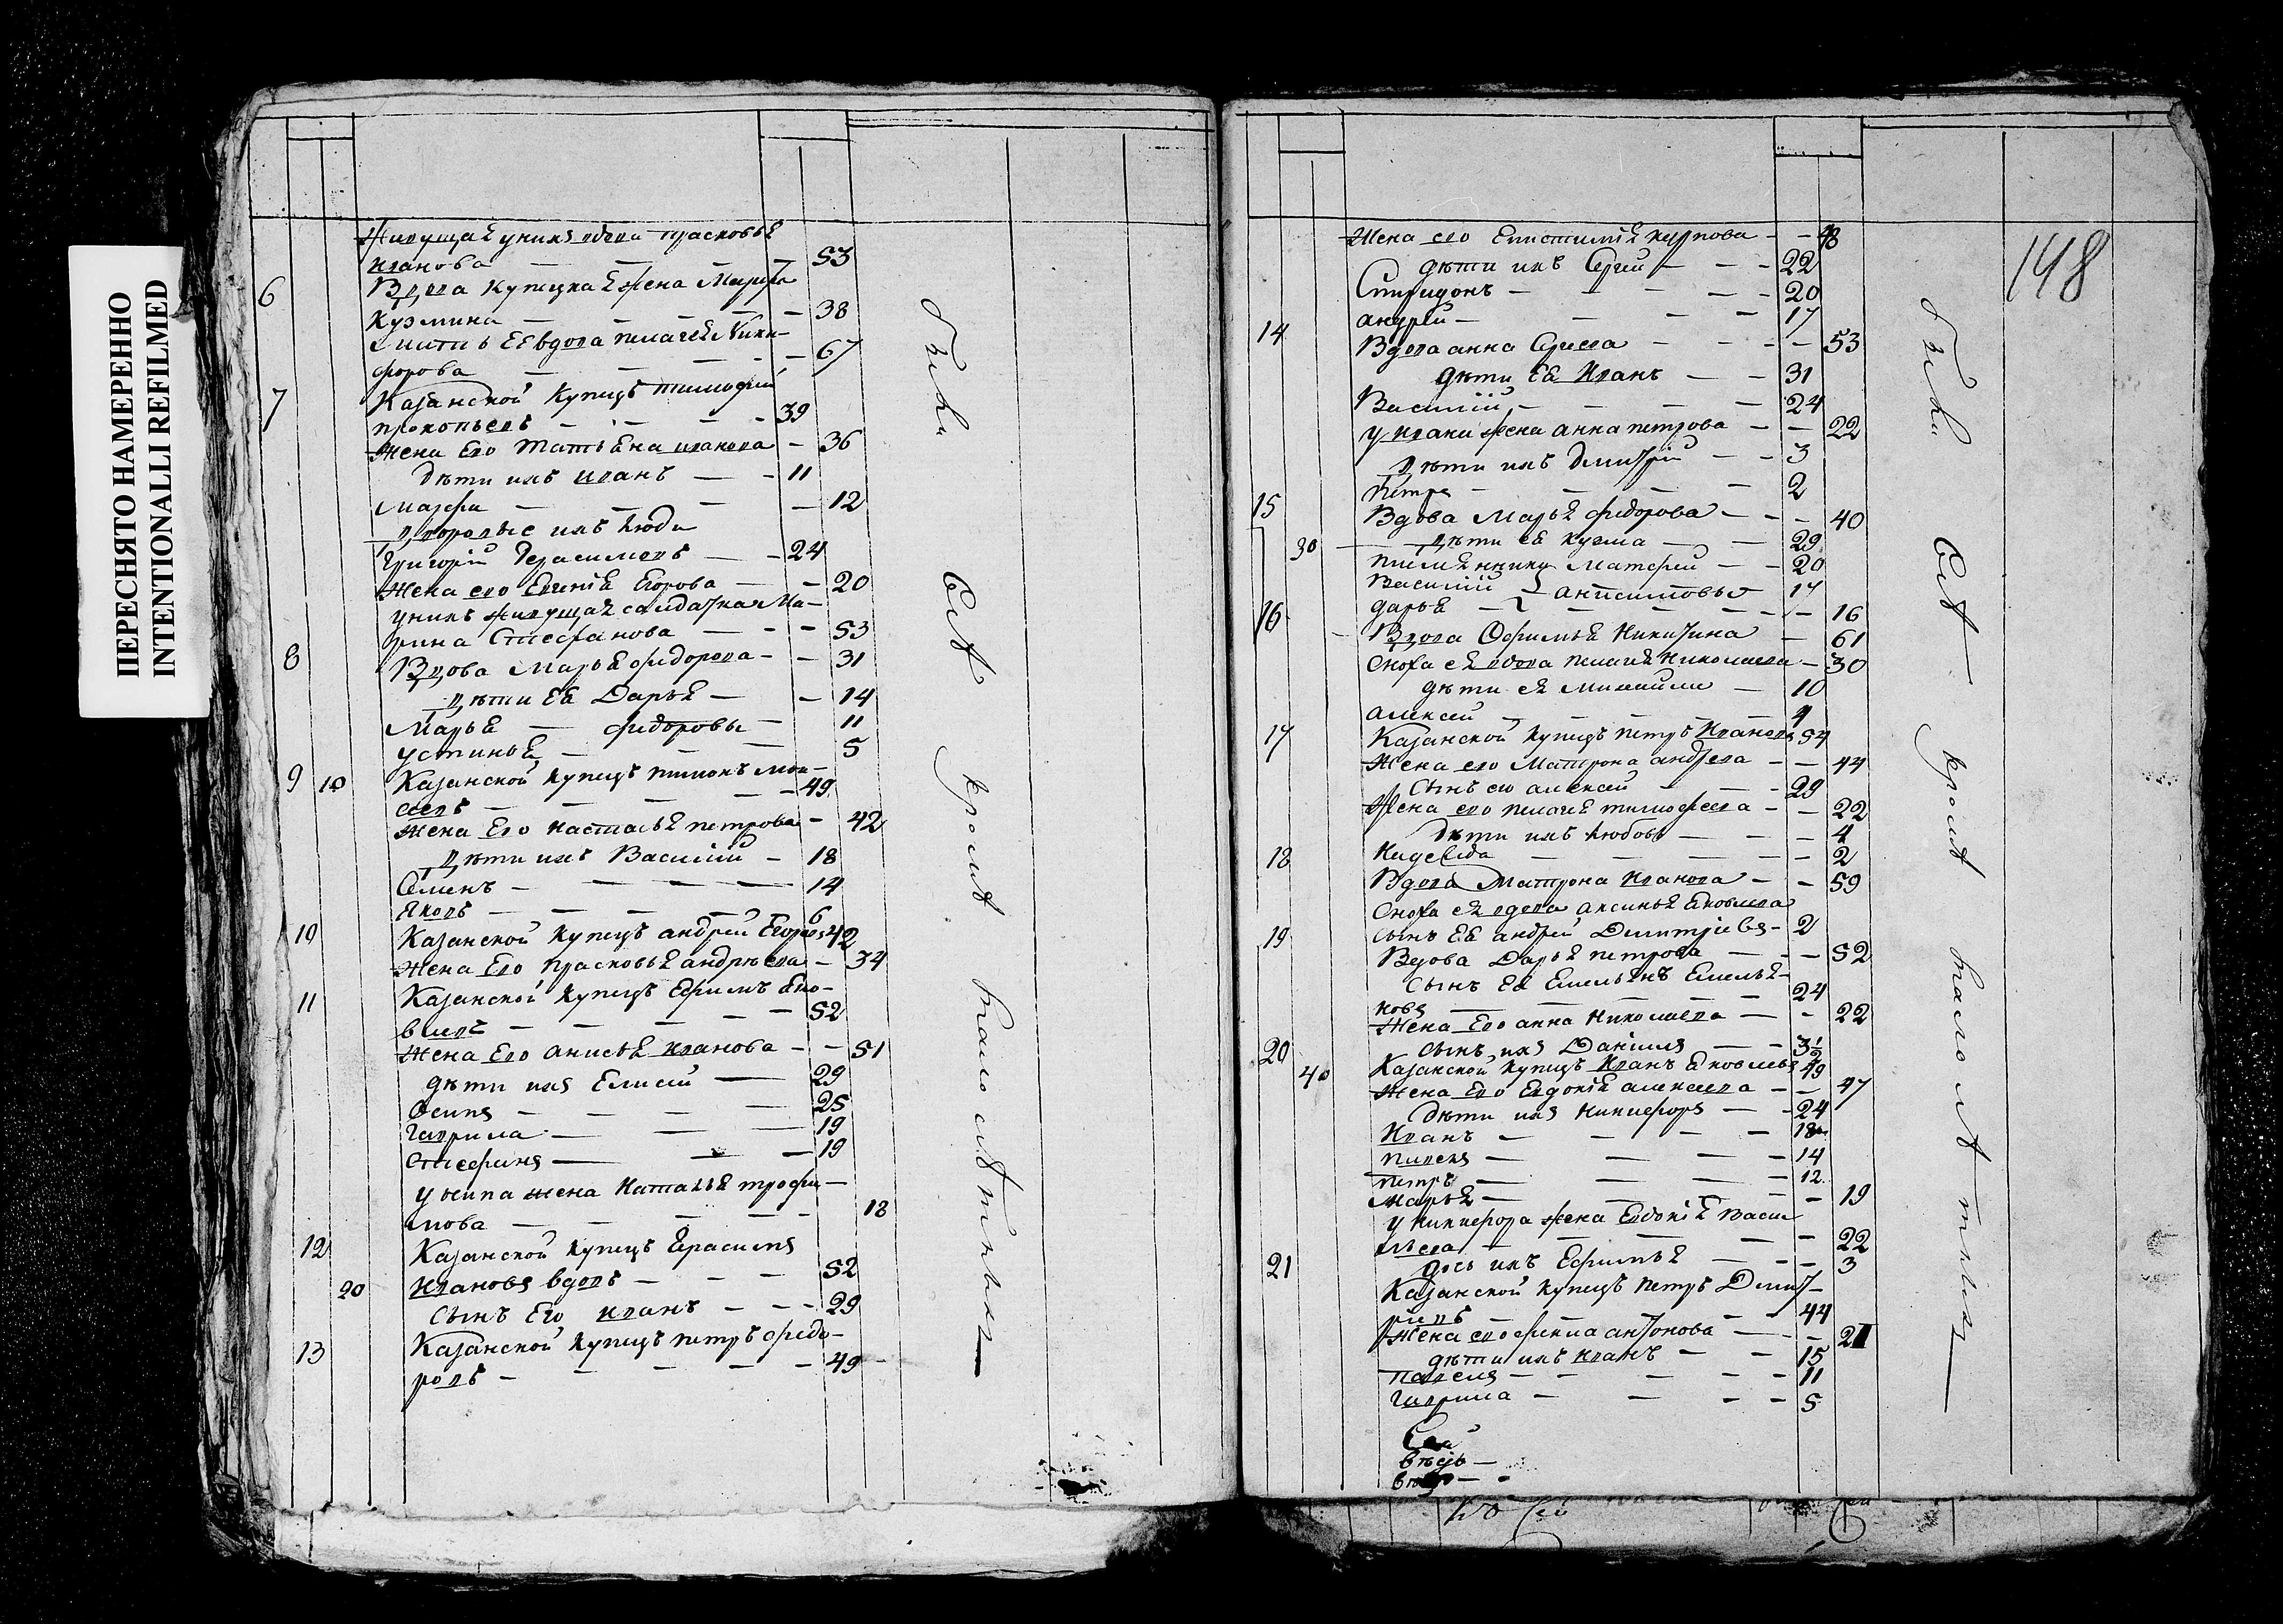 ПЕРЕСНЯТО НАМЕРЕННО
INTENTIONALLI REFILMED
Живущая унихъ вдова прасковья
иванова — 53
6 Вдова купецкая жена Марфа
кузмина — 38
вдова пелагея Ники-
форова — 67
7 Казанской купецъ тимофей
прокопьевъ — 39
Жена Его Татьяна иванова — 36
дѣти ихъ иванъ — 11
Марфа — 12
дворовые ихъ люди
Григорий Герасимовъ — 24
Жена его Евгения Егорова — 20
унихъ живущая салдатка Ма-
рина Стефанова — 53
8 Вдова Марья федорова — 31
дѣти Ея Дарья — 14
Марья — федоровы — 11
устинья — 5
9 10 Казанской купецъ пимонъ мои-
сеевъ — 49
Жена Его настасья петрова — 42
дѣти ихъ Василий — 18
Семенъ — 14
Яковъ — 6
10 Казанской купецъ андрей Егоровъ 42
Жена Его прасковья андрѣева — 34
11 Казанской купецъ Ефимъ Яко-
влевъ — 52
Жена Его анисья иванова — 51
дѣти ихъ Елисей — 29
Осипъ — 25
Гаврила — 19
Стефанъ — 19
у осипа жена Наталья трофи-
мова — 18
12 Казанской купецъ Герасимъ
20 Ивановъ вдовъ — 52
сынъ Его иванъ — 29
13 Казанской купецъ петръ федо-
ровъ — 49
были всѣ кромѣ малолѣтныхъ
148
Жена его Епистимия карпова — 48
дѣти ихъ Сергей — 22
Спиридонъ — 20
андрей — 17
14 Вдова анна Сергеева — 53
дѣти Ея Иванъ — 31
Василий — 24
у ивана жена анна петрова — 22
дѣти ихъ Дмитрий — 3
петръ — 2
15 Вдова Марья федорова — 40
30 дѣти ея кузма — 29
племянники Матфей — 20
Василий — 17
дарья — 16
16 Вдова Офимья Никитина — 61
Сноха ея вдова пелагея николаева — 30
дѣти ея михайла — 10
алексей — 4
17 Казанской купецъ петръ Ивановъ 54
Жена его Матрона андреева — 44
Сынъ его алексей — 29
Жена его пелагея тимофеева — 22
дѣти ихъ любовь — 4
Надежда — 2
18 Вдова Матрона Иванова — 59
Сноха ея вдова аксинья Яковлева
сынъ Ея андрей Дмитриевъ — 2
19 Вдова Дарья петрова — 52
Сынъ Ея Емельянъ Емелья-
новъ — 24
Жена Его анна Николаева — 22
сынъ ихъ Данила — 3½
20 Казанской купецъ Иванъ Яковлевъ 49
40 Жена Его Евдокия алексеева — 47
дѣти ихъ Никифоръ — 24
Иванъ — 18
павелъ — 14
петръ — 12
Марья — 19
у никифора жена Евдокия Васи
льева — 22
дочь ихъ Ефимья — 3
21 Казанской купецъ петръ Дмит-
риевъ — 44
Жена его фекла антонова — 2
дѣти ихъ иванъ — 15
павелъ — 11
Гаврила — 5
были всѣ кромѣ малолѣтныхъ